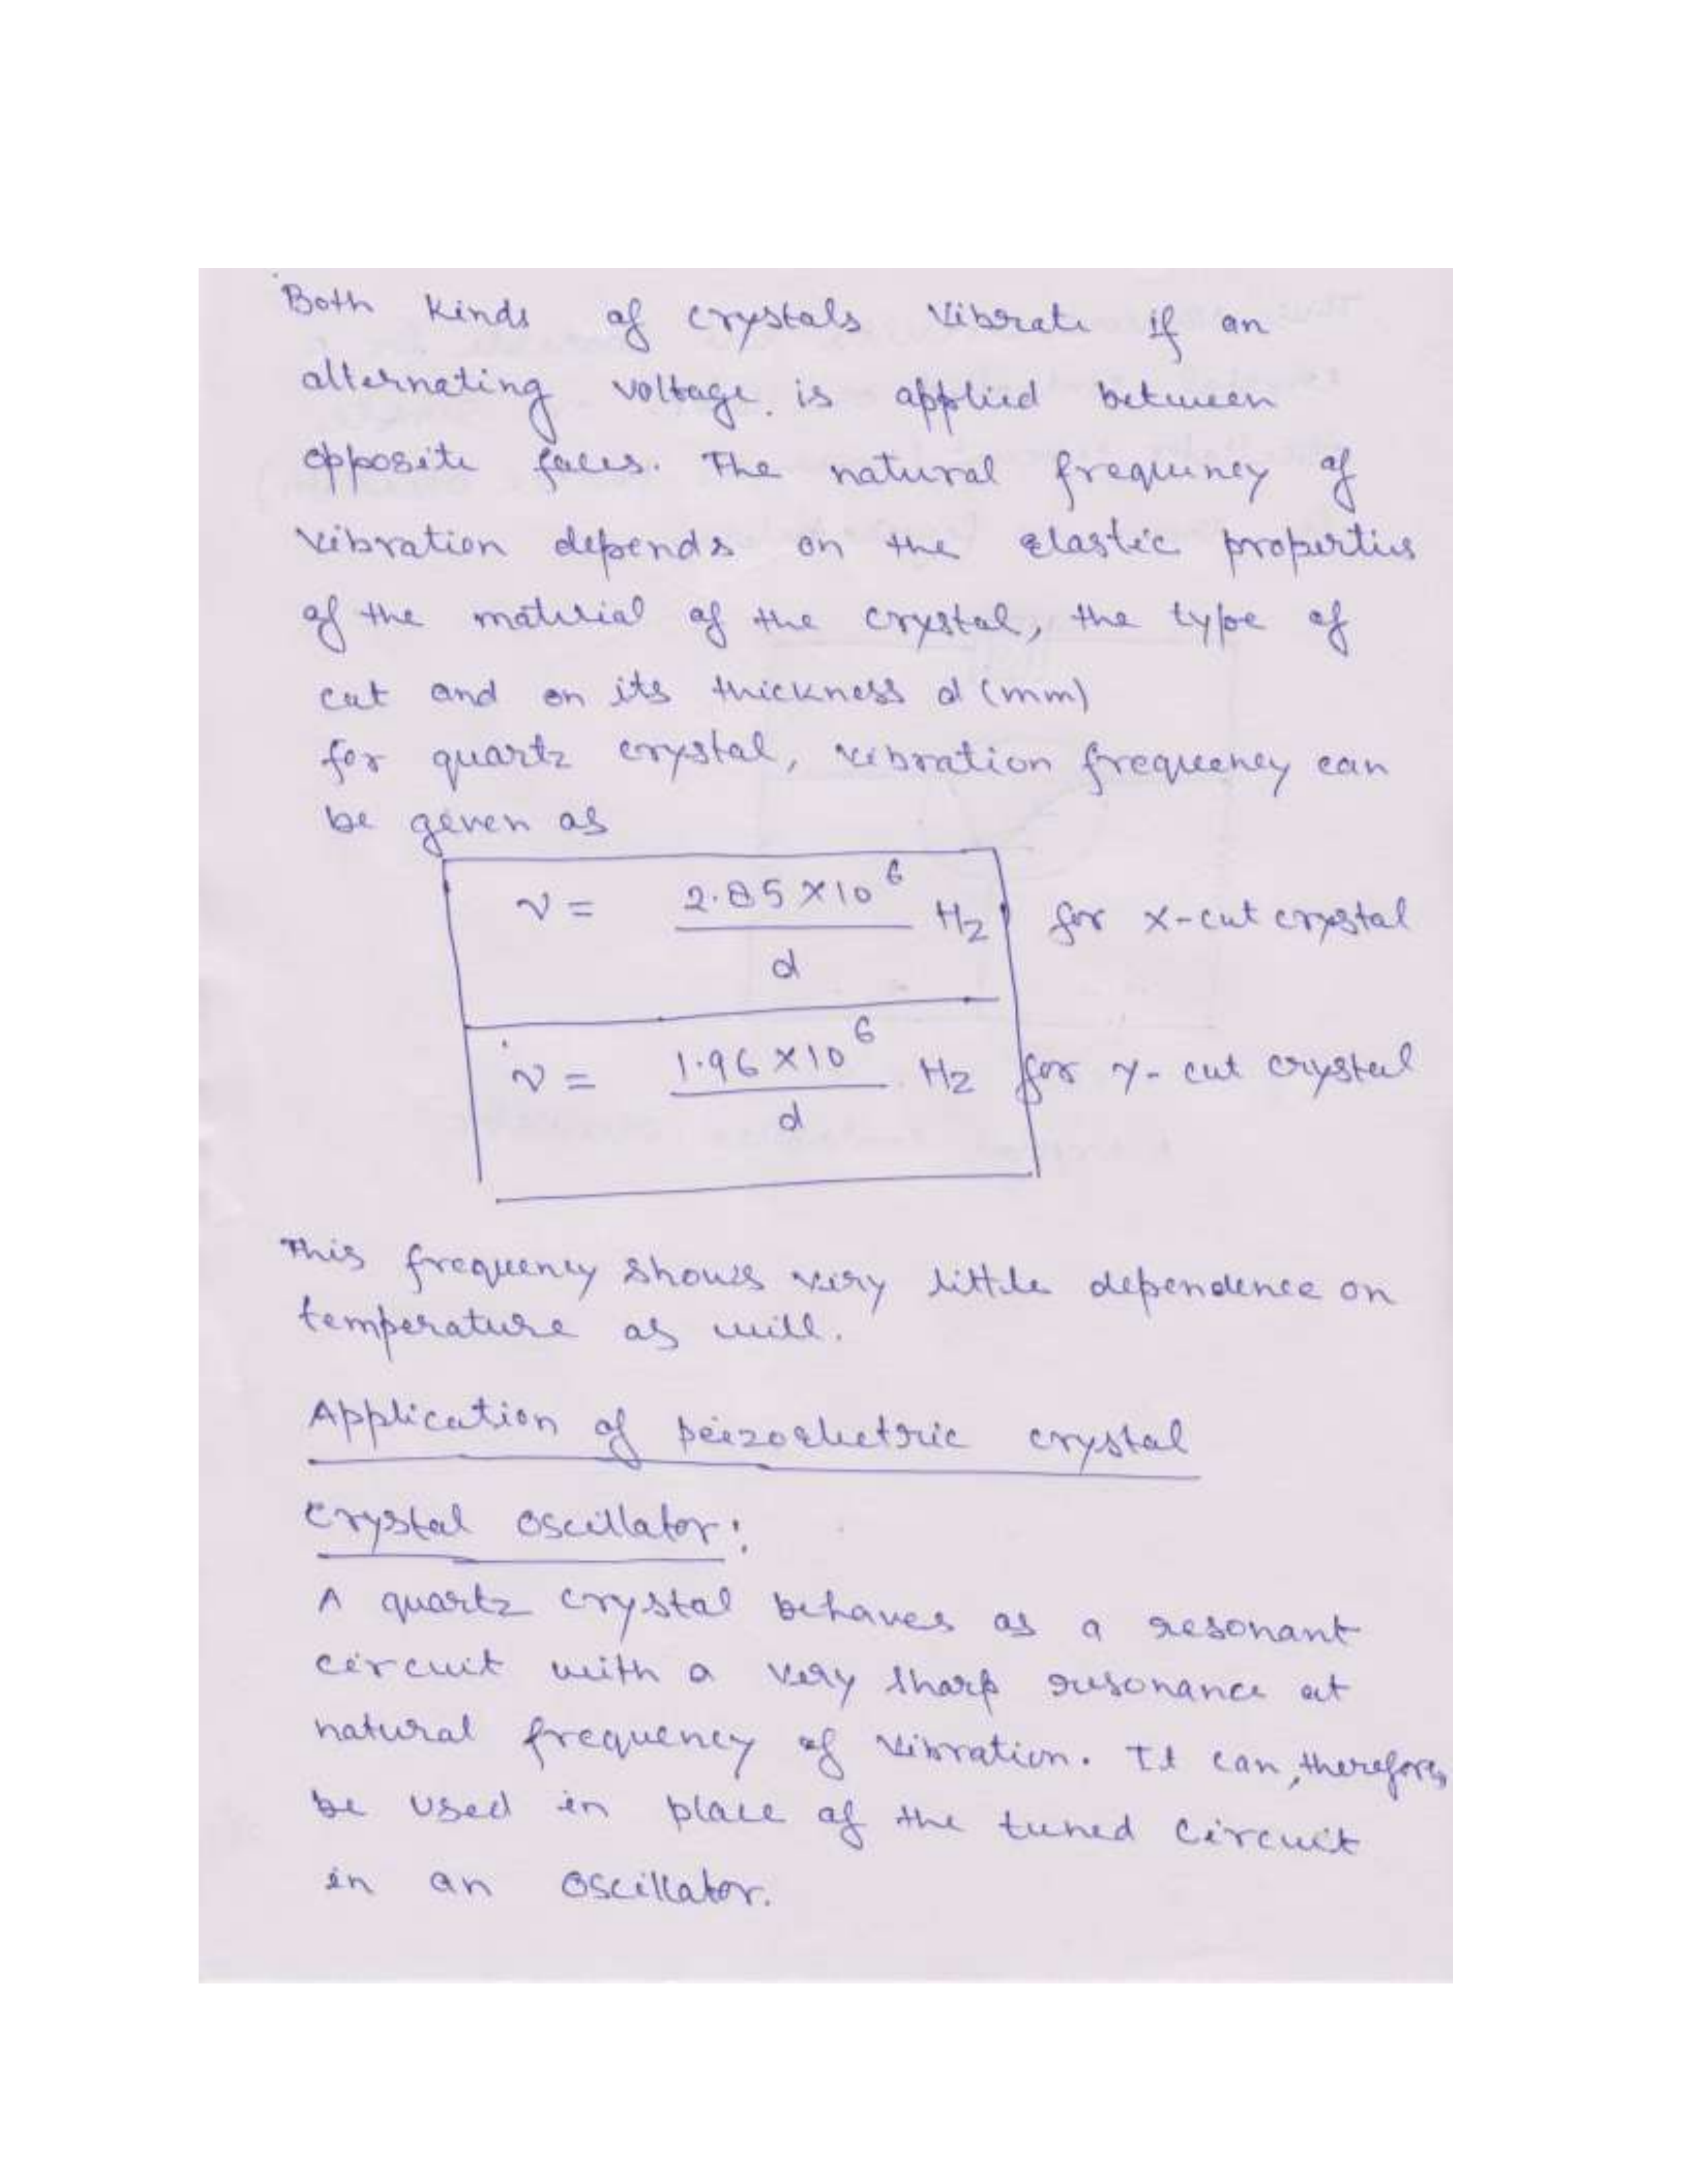 Both kinds of crystals vibrate if an
alternating voltage is applied between
opposite faces. The natural frequency of
vibration depends on the elastic properties
of the material of the crystal, the type of
cut and on its thickness d (mm)
for quartz crystal, vibration frequency can
be given as
ν = 2.85 × 10^6 / d Hz for x-cut crystal
ν = 1.96 × 10^6 / d Hz for y-cut crystal
This frequency shows very little dependence on
temperature as will.
Application of peizoelectric crystal
Crystal oscillator:
A quartz crystal behaves as a resonant
circuit with a very sharp resonance at
natural frequency of vibration. It can, therefore,
be used in place of the tuned circuit
in an oscillator.